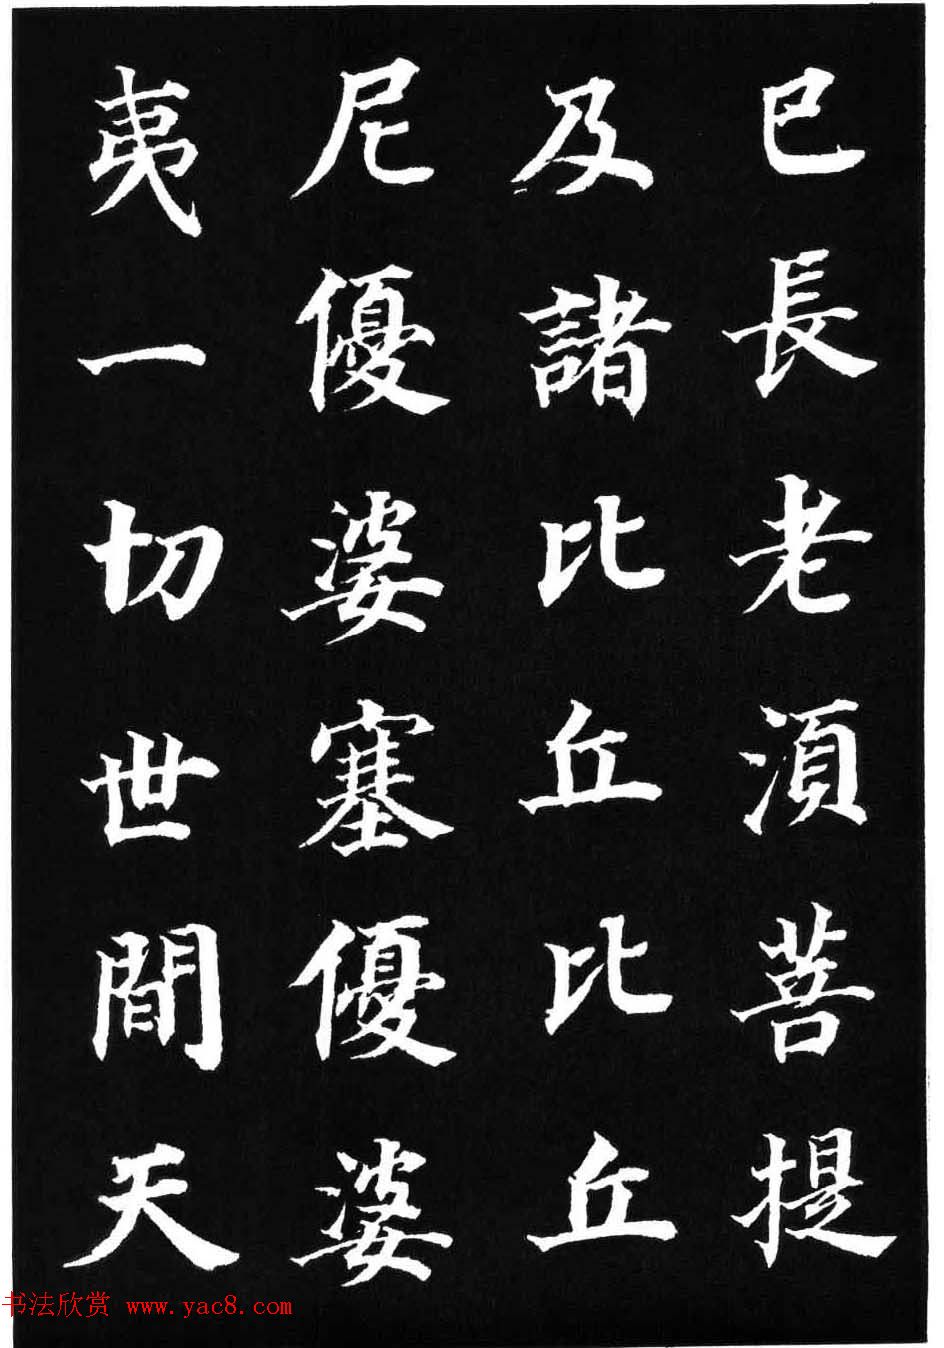 已長老湏菩提
及諸比丘比丘
尼優婆塞優婆
夷一切世間天
书法欣赏 www.yac8.com